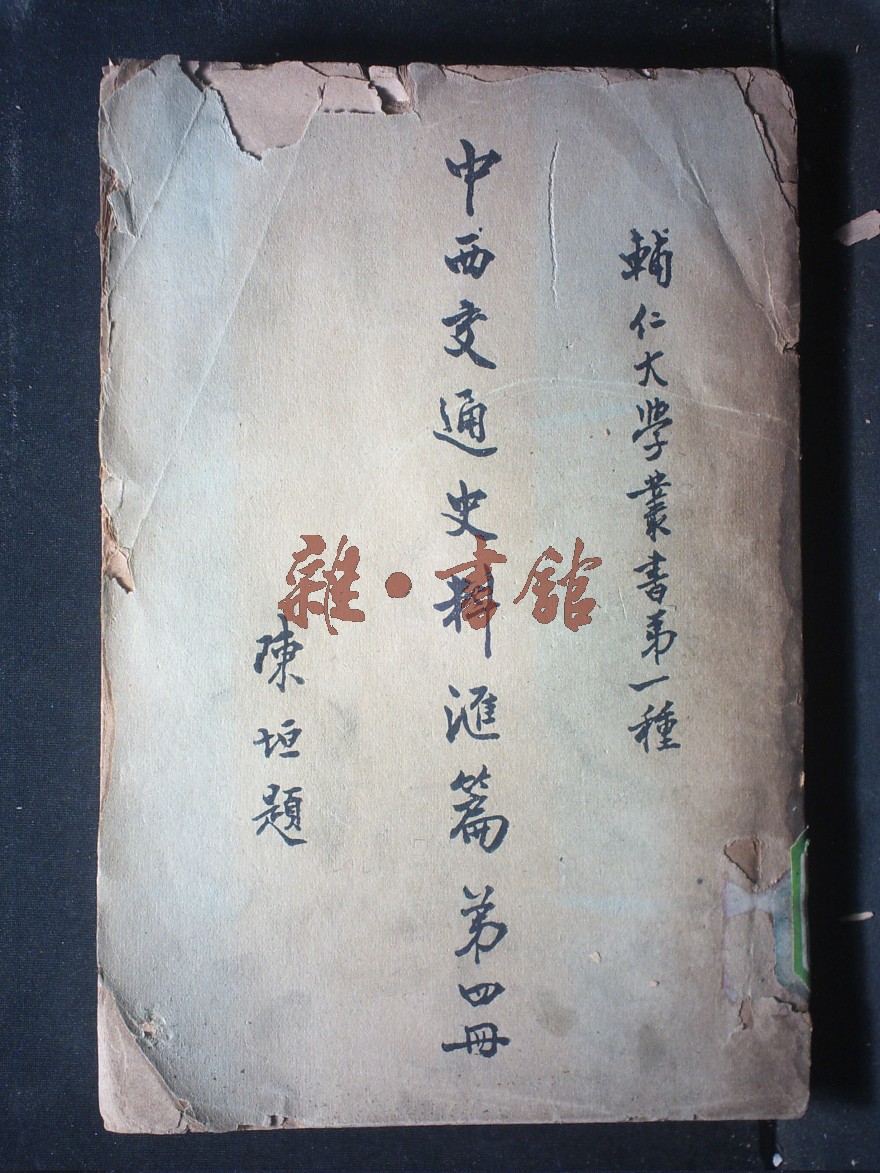 輔仁大學叢書第一種
中西交通史料滙篇第四冊
陳垣題
雜·書館